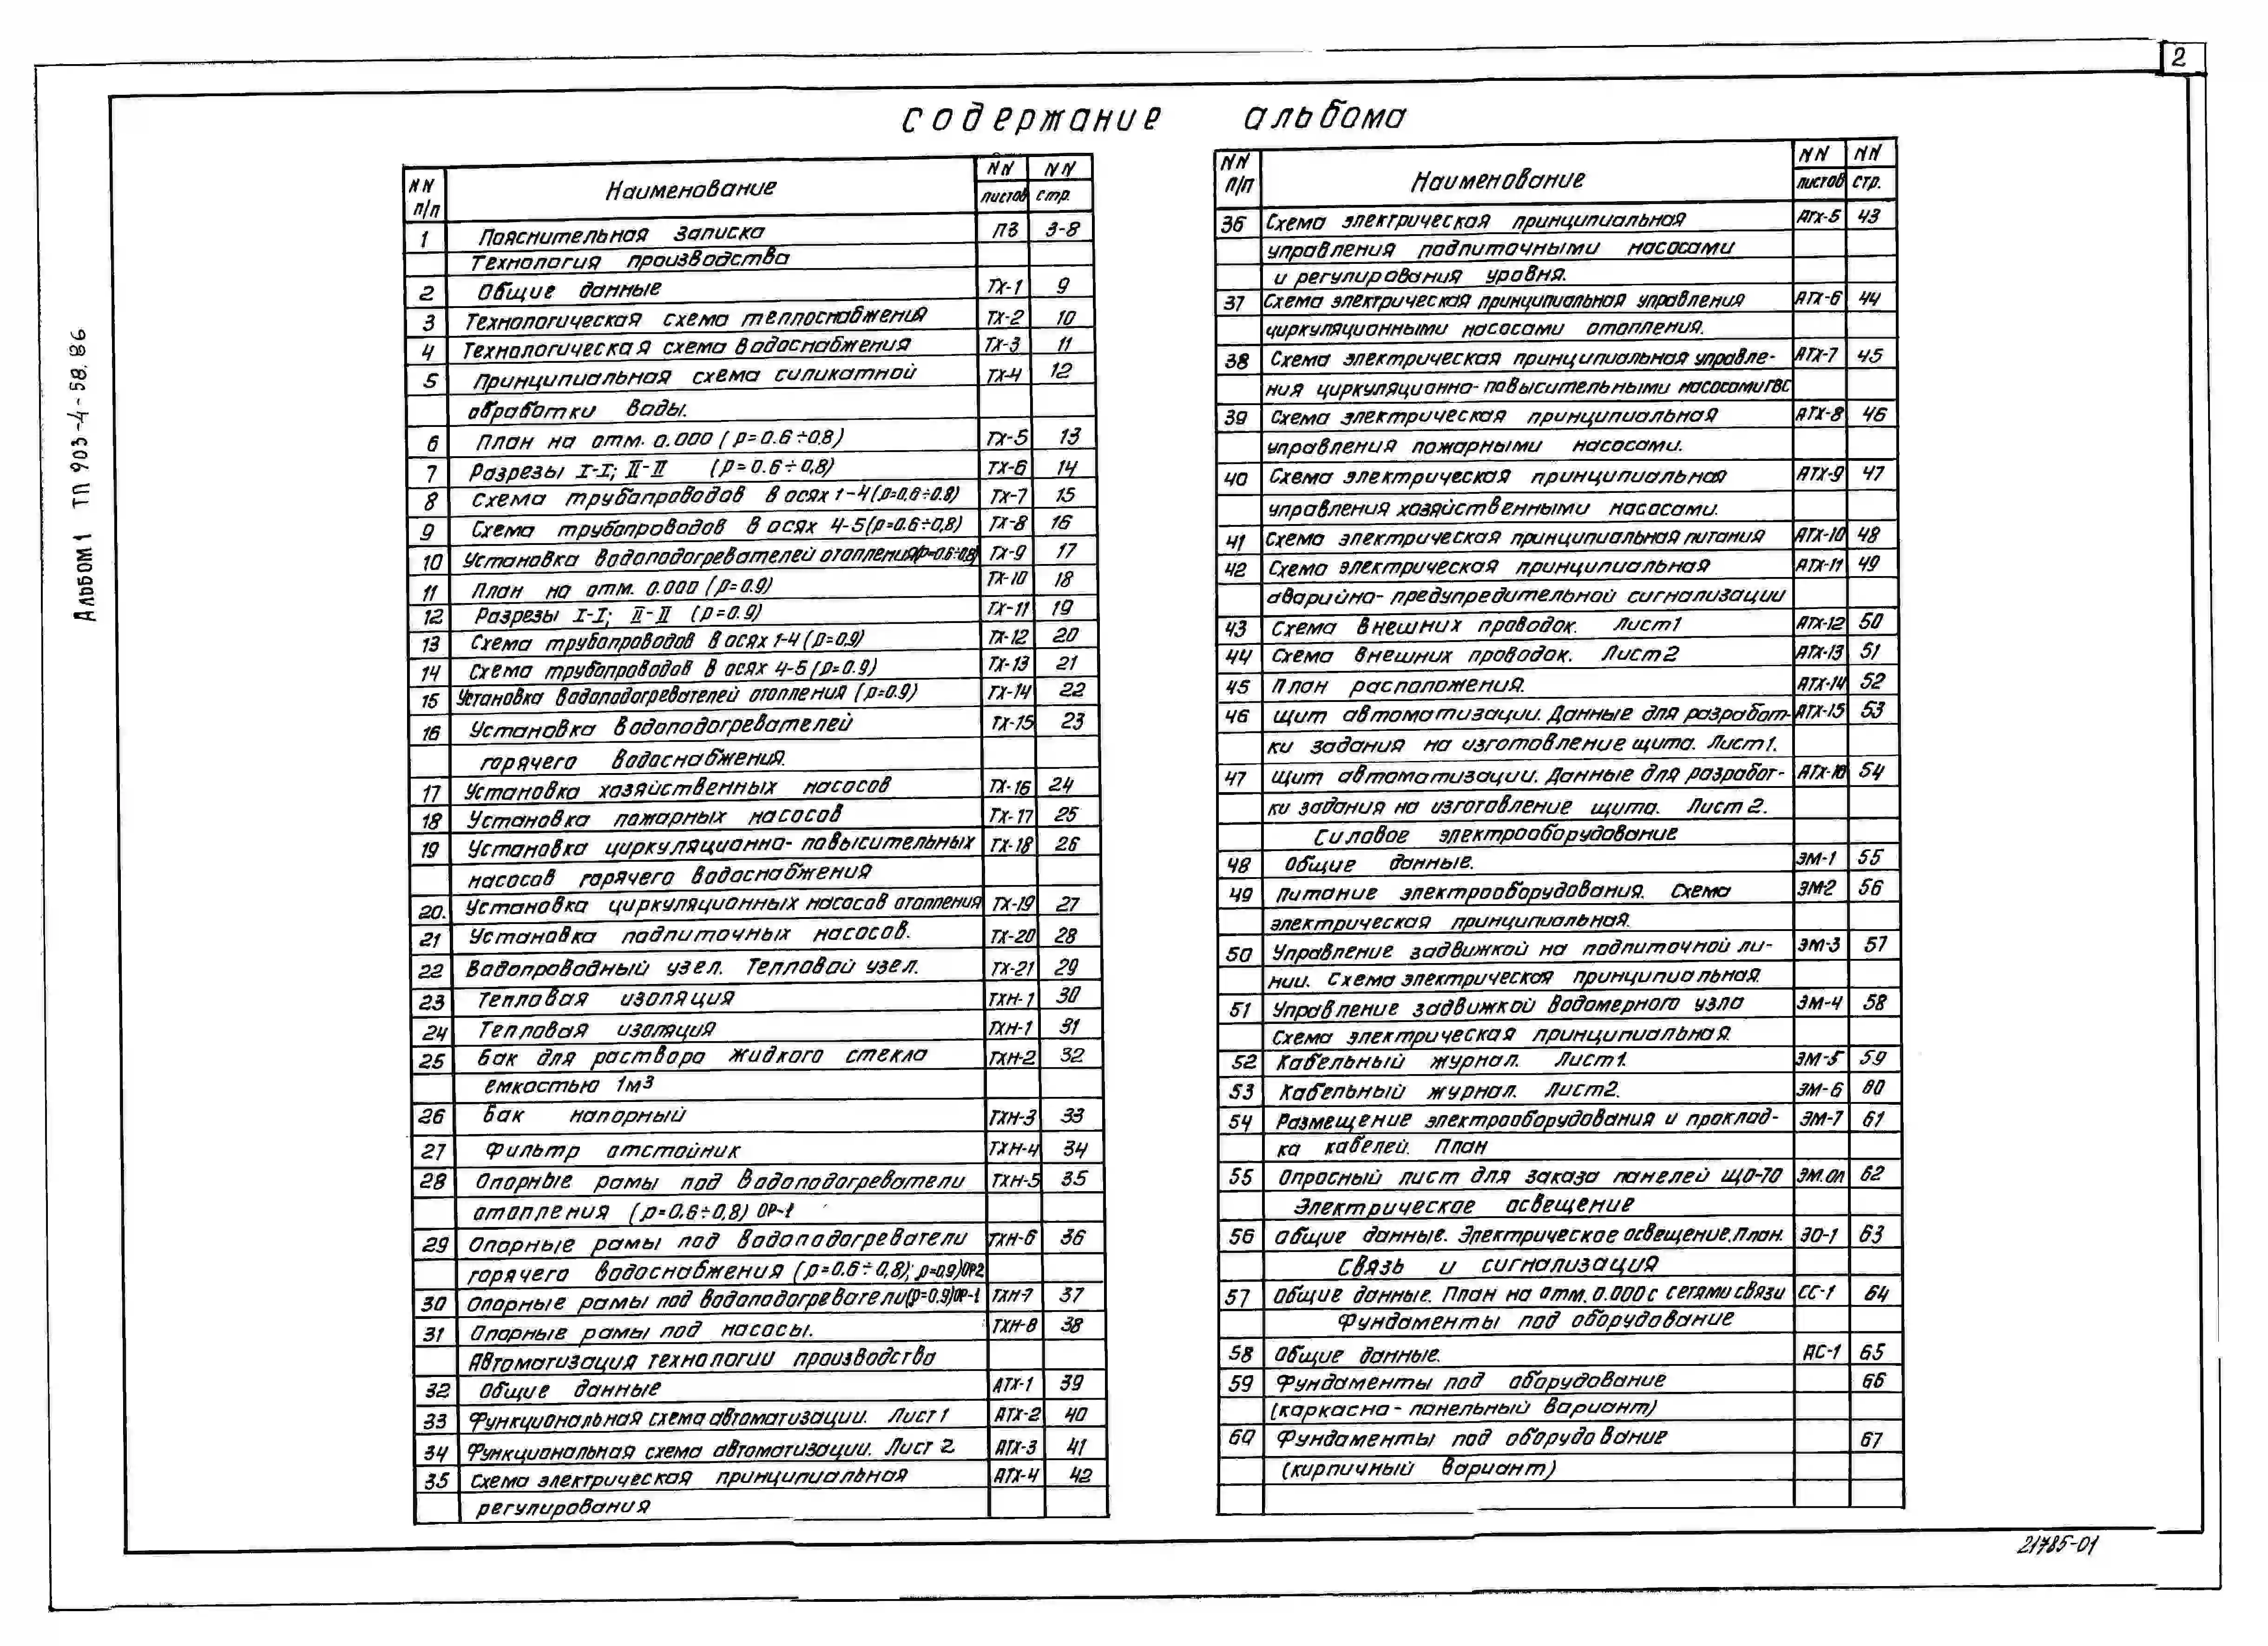 2
содержание альбома
Альбом 1 ТП 903-4-58.86
NN п/п Наименование NN листов NN стр.
1 Пояснительная записка ПЗ 3-8
Технология производства
2 Общие данные ТХ-1 9
3 Технологическая схема теплоснабжения ТХ-2 10
4 Технологическая схема водоснабжения ТХ-3 11
5 Принципиальная схема силикатной ТХ-4 12
обработки воды.
6 План на отм. 0.000 (р=0.6÷0.8) ТХ-5 13
7 Разрезы I-I; II-II (р=0.6÷0,8) ТХ-6 14
8 Схема трубопроводов в осях 1-4 (р=0,6÷0.8) ТХ-7 15
9 Схема трубопроводов в осях 4-5 (р=0.6÷0,8) ТХ-8 16
10 Установка водоподогревателей отопления (р=0.6÷0,8) ТХ-9 17
11 План на отм. 0.000 (р=0.9) ТХ-10 18
12 Разрезы I-I; II-II (р=0.9) ТХ-11 19
13 Схема трубопроводов в осях 1-4 (р=0.9) ТХ-12 20
14 Схема трубопроводов в осях 4-5 (р=0.9) ТХ-13 21
15 Установка водоподогревателей отопления (р=0.9) ТХ-14 22
16 Установка водоподогревателей ТХ-15 23
горячего водоснабжения.
17 Установка хозяйственных насосов ТХ-16 24
18 Установка пожарных насосов ТХ-17 25
19 Установка циркуляционно-повысительных ТХ-18 26
насосов горячего водоснабжения
20. Установка циркуляционных насосов отопления ТХ-19 27
21 Установка подпиточных насосов. ТХ-20 28
22 Водопроводный узел. Тепловой узел. ТХ-21 29
23 Тепловая изоляция ТХН-1 30
24 Тепловая изоляция ТХН-1 31
25 Бак для раствора жидкого стекла ТХН-2 32
емкостью 1м3
26 Бак напорный ТХН-3 33
27 Фильтр отстойник ТХН-4 34
28 Опорные рамы под водоподогреватели ТХН-5 35
отопления (р=0.6÷0,8) ОР-1
29 Опорные рамы под водоподогреватели ТХН-6 36
горячего водоснабжения (р=0.6÷0,8); р=0,9) ОР2
30 Опорные рамы под водоподогреватели (р=0.9) ОР-1 ТХН-7 37
31 Опорные рамы под насосы. ТХН-8 38
Автоматизация технологии производства
32 Общие данные АТХ-1 39
33 Функциональная схема автоматизации. Лист 1 АТХ-2 40
34 Функциональная схема автоматизации. Лист 2 АТХ-3 41
35 Схема электрическая принципиальная АТХ-4 42
регулирования
NN п/п Наименование NN листов NN стр.
36 Схема электрическая принципиальная АТХ-5 43
управления подпиточными насосами
и регулирования уровня.
37 Схема электрическая принципиальная управления АТХ-6 44
циркуляционными насосами отопления.
38 Схема электрическая принципиальная управле- АТХ-7 45
ния циркуляционно-повысительными насосами ГВС
39 Схема электрическая принципиальная АТХ-8 46
управления пожарными насосами.
40 Схема электрическая принципиальная АТХ-9 47
управления хозяйственными насосами.
41 Схема электрическая принципиальная питания АТХ-10 48
42 Схема электрическая принципиальная АТХ-11 49
аварийно-предупредительной сигнализации
43 Схема внешних проводок. Лист 1 АТХ-12 50
44 Схема внешних проводок. Лист 2 АТХ-13 51
45 План расположения. АТХ-14 52
46 Щит автоматизации. Данные для разработ- АТХ-15 53
ки задания на изготовление щита. Лист 1.
47 Щит автоматизации. Данные для разработ- АТХ-16 54
ки задания на изготовление щита. Лист 2.
Силовое электрооборудование
48 Общие данные. ЭМ-1 55
49 Питание электрооборудования. Схема ЭМ2 56
электрическая принципиальная.
50 Управление задвижкой на подпиточной ли- ЭМ-3 57
нии. Схема электрическая принципиальная.
51 Управление задвижкой водомерного узла ЭМ-4 58
Схема электрическая принципиальная.
52 Кабельный журнал. Лист 1. ЭМ-5 59
53 Кабельный журнал. Лист 2. ЭМ-6 60
54 Размещение электрооборудования и проклад- ЭМ-7 61
ка кабелей. План
55 Опросный лист для заказа панелей ЩО-70 ЭМ.ОЛ 62
Электрическое освещение
56 Общие данные. Электрическое освещение. План. ЭО-1 63
Связь и сигнализация
57 Общие данные. План на отм. 0.000 с сетями связи СС-1 64
Фундаменты под оборудование
58 Общие данные. АС-1 65
59 Фундаменты под оборудование 66
(каркасно-панельный вариант)
60 Фундаменты под оборудование 67
(кирпичный вариант)
21785-01